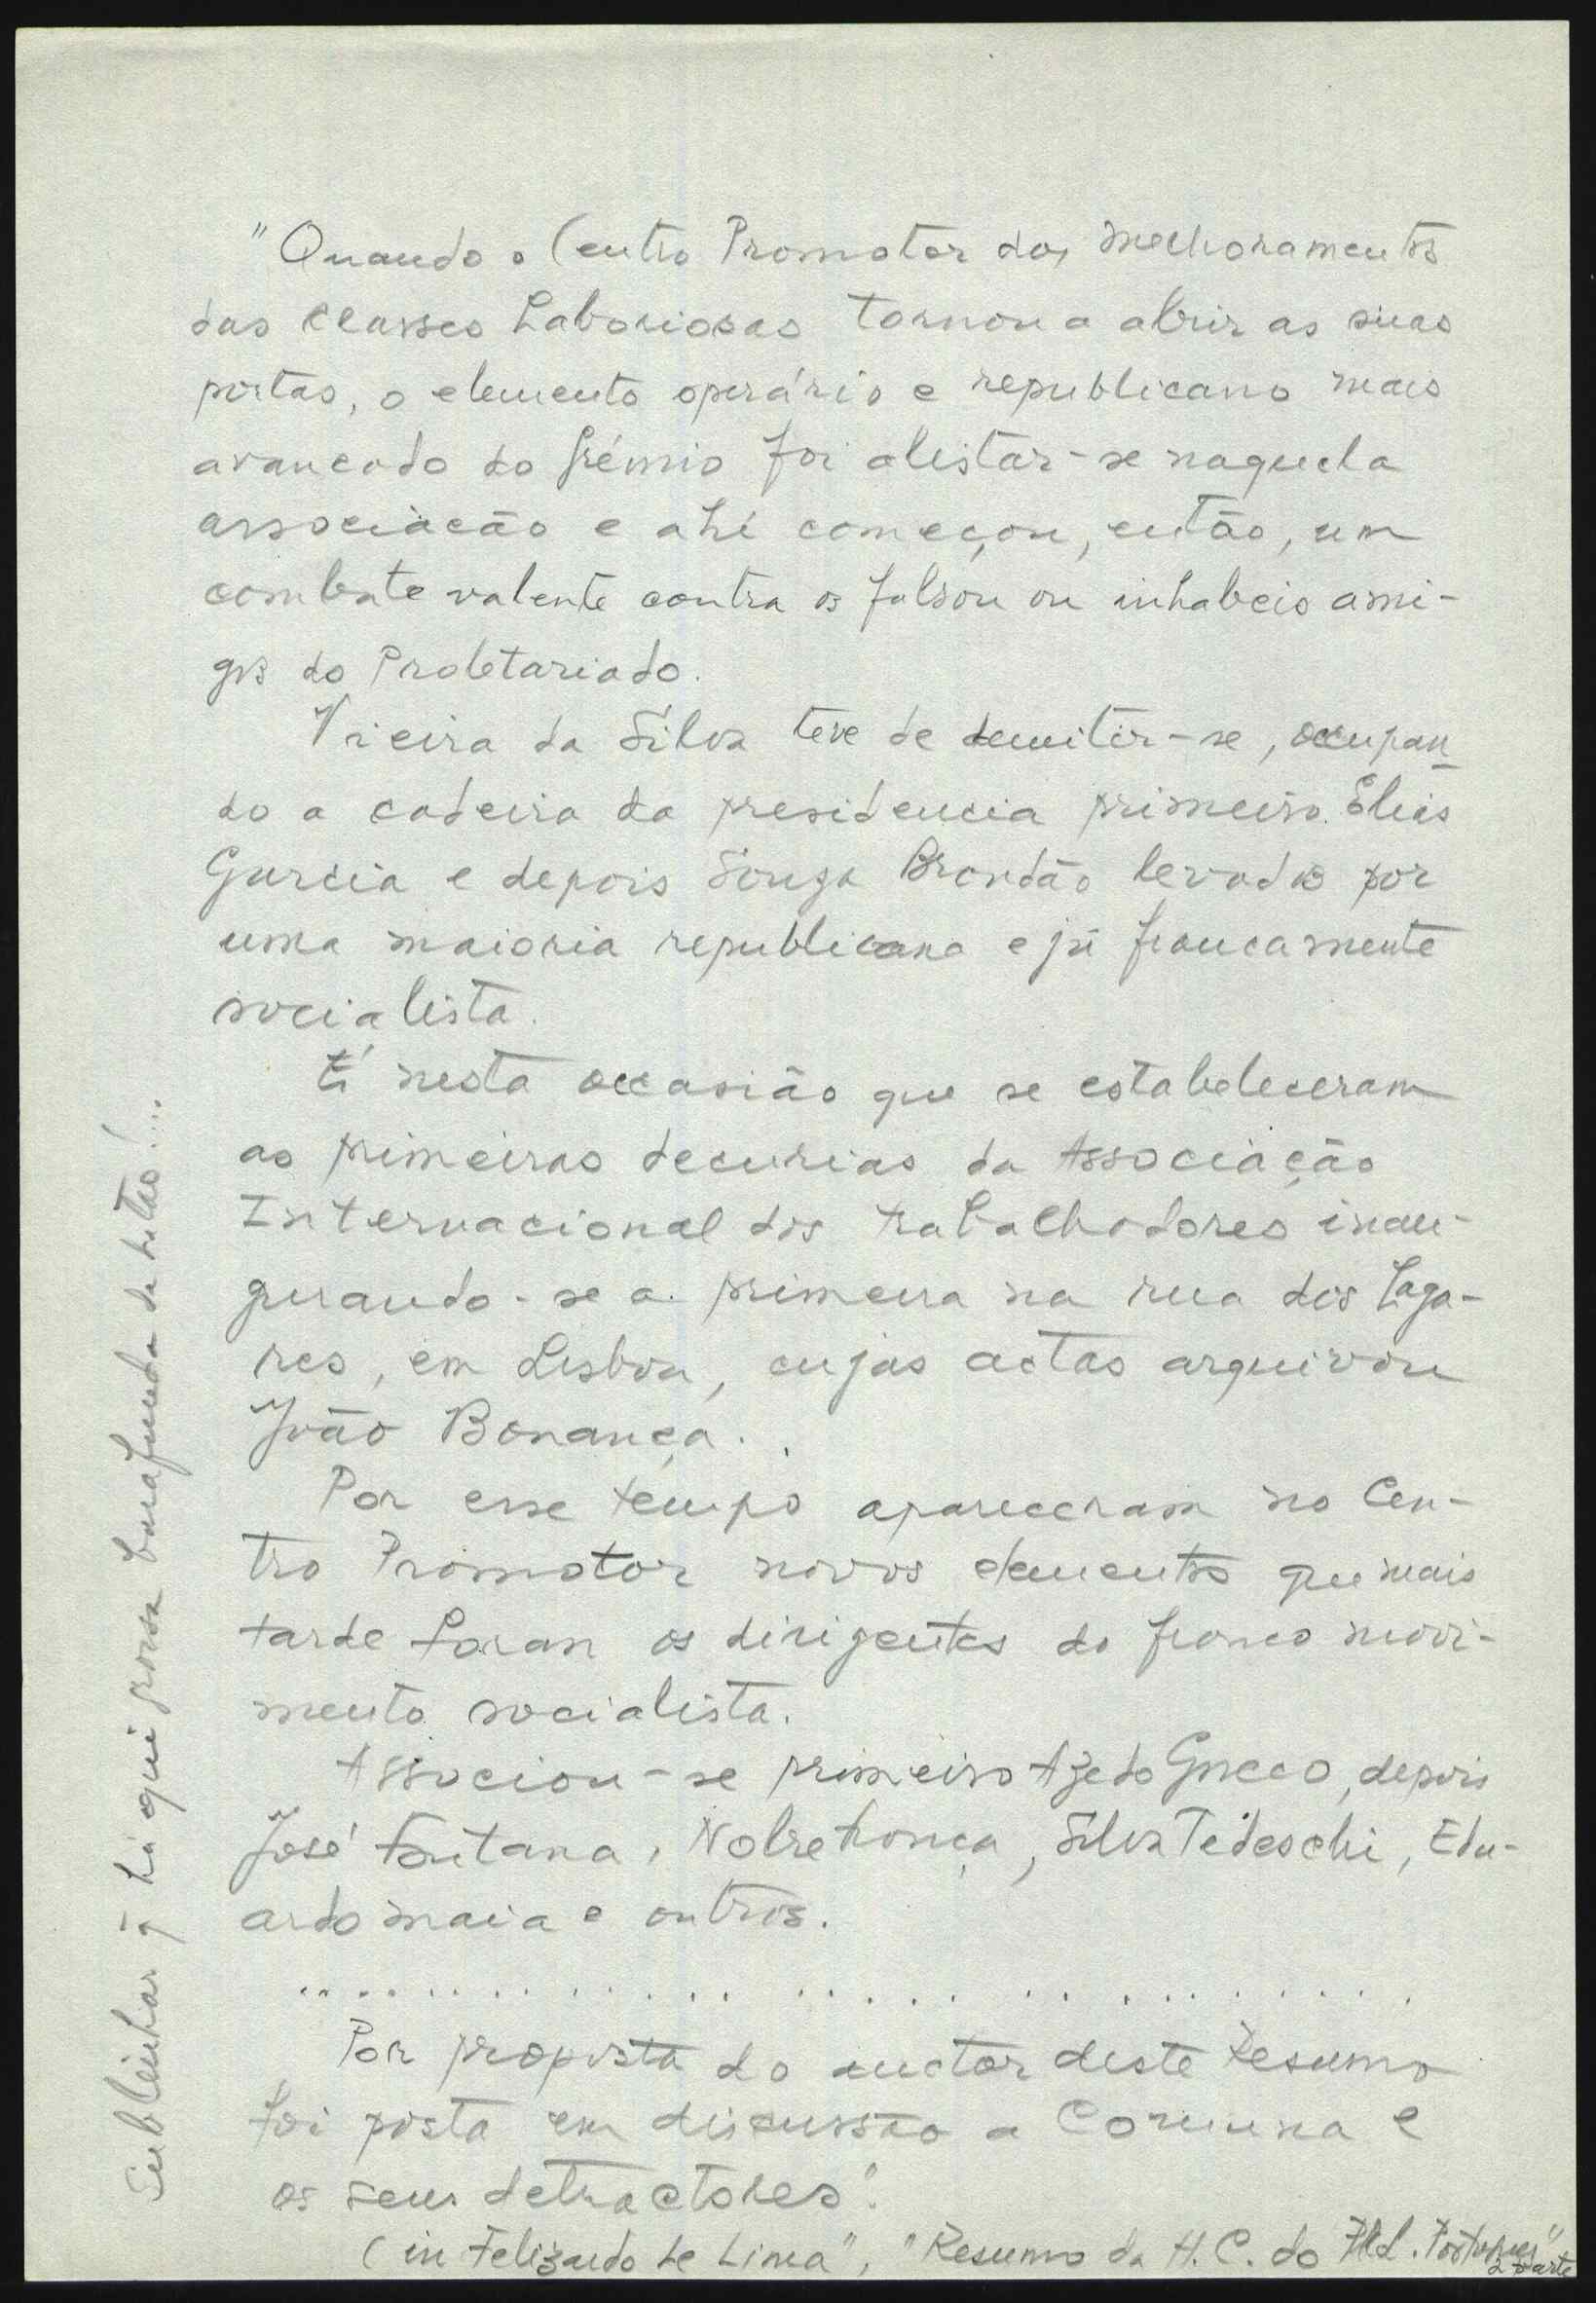 "Quando o Centro Promotor dos Melhoramentos
das Classes Laboriosas tornou a abrir as suas
portas, o elemento operário e republicano mais
avancado do Grémio foi alistar-se naquela
associacão e ahi começou, então, um
combate valente contra os falsou ou inhabeis ami-
gos do Proletariado.
Vieira da Silva teve de demitir-se, occupan
do a cadeira da presidencia primeiro Elias
Garcia e depois Souza Brandão levados por
uma maioria republicana e já francamente
socialista.
É nesta occasião que se estabeleceram
as primeiras decurias da Associação
Internacional dos trabalhadores inau-
gurando-se a primeira na rua dos Laga-
res, em Lisboa, cujas actas arquivou
João Bonança.
Por esse tempo apareceram no Cen-
tro Promotor novos elementos que mais
tarde foram os dirigentes do franco movi-
mento socialista.
Associou-se primeiro Azedo Gneco, depois
José Fontana, Nobre França, Silva Tedeschi, Edu-
ardo Maia e outros.
. . . . . . . . . . . . . . . . . . . . . . . . . . .
Por proposta do auctor deste resumo
foi posta em discussão a Comuna e
os seus detractores".
(in Felizardo de Lima", "Resumo da H. C. do Portugues"
2ª parte
Sublinhar q̄ há qui grossa barafunda de datas!...